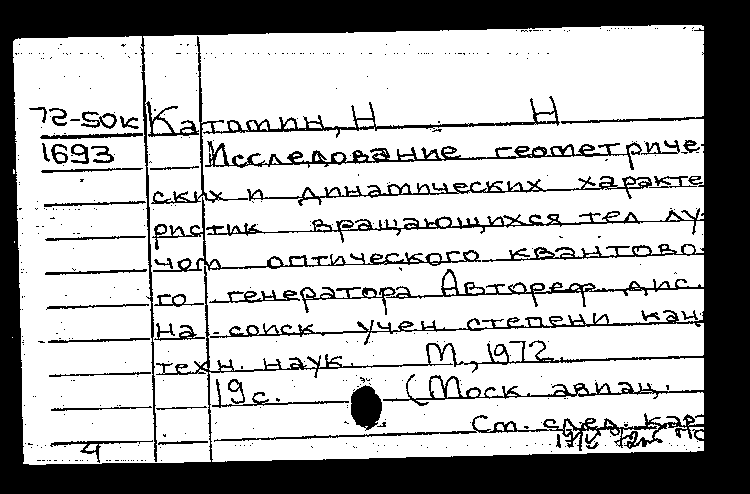 72-50к Катомин, Н Н
1693 Исследование геометриче-
ских и динамических характе
ристик вращающихся тел лу-
чом оптического квантово-
го генератора Автореф. дис.
на соиск. учен степени кан
техн. наук. М., 1972.
19 с. (Моск. авиац.
См. след. кар
4